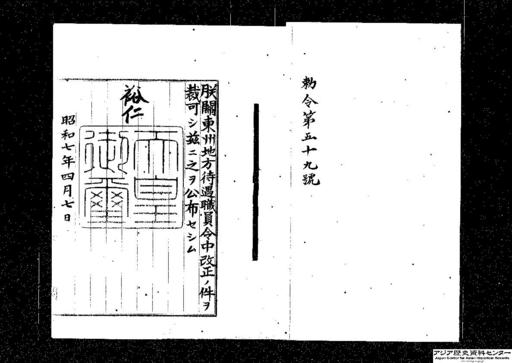 勅令第五十九號
朕關東州地方待遇職員令中改正ノ件ヲ
裁可シ茲ニ之ヲ公布セシム
裕仁
天皇
御璽
昭和七年四月七日
アジア歴史資料センター
Japan Center for Asian Historical Records